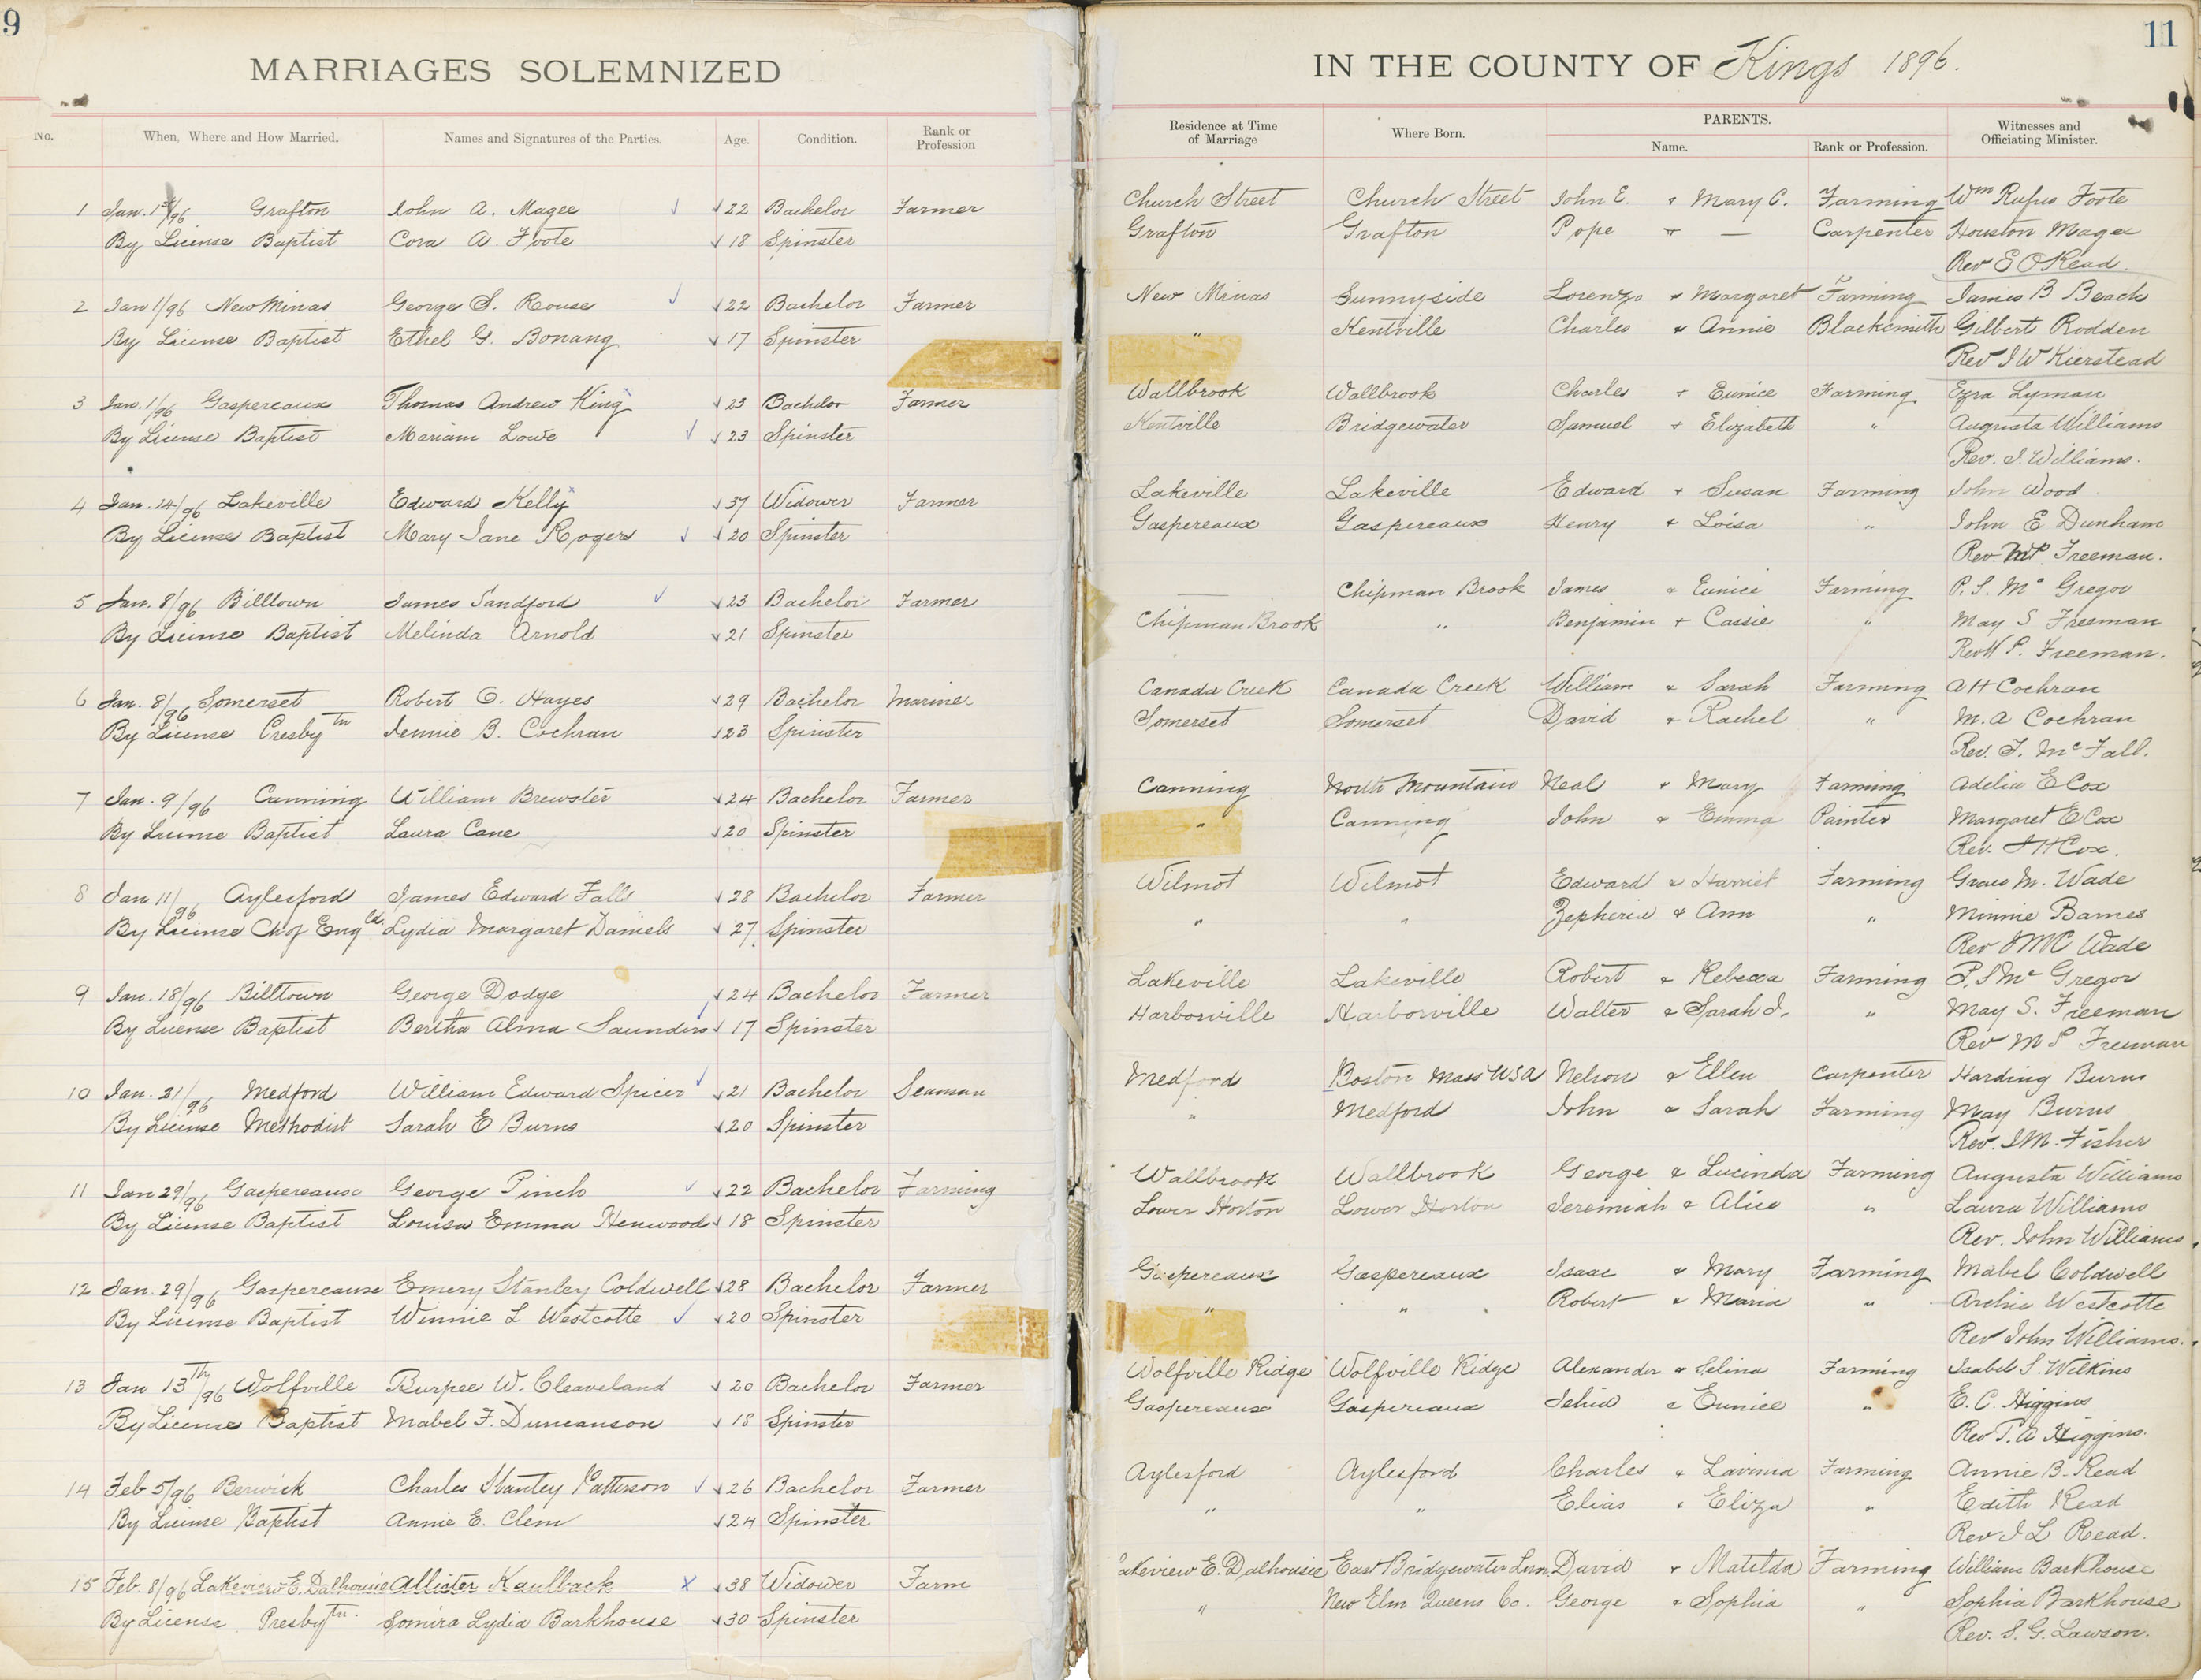 9
11
MARRIAGES SOLEMNIZED IN THE COUNTY OF Kings 1896.
No. When, Where and How Married. Names and Signatures of the Parties. Age. Condition. Rank or Profession Residence at Time of Marriage Where Born. PARENTS. Name. Rank or Profession. Witnesses and Officiating Minister.
1 Jan. 1st/96 Grafton John A. Magee 22 Bachelor Farmer Church Street Church Street John E. & Mary C. Farming Wm Rufus Foote
By License Baptist Cora A. Foote 18 Spinster Grafton Grafton Pope & — Carpenter Houston Magee
Rev E O Read.
2 Jan 1/96 New Minas George S. Rouse 22 Bachelor Farmer New Minas Sunnyside Lorenzo & Margaret Farming James B Beach
By License Baptist Ethel G. Bonang 17 Spinster " Kentville Charles & Annie Blacksmith Gilbert Rodden
Rev I W Kierstead
3 Jan. 1/96 Gaspereaux Thomas Andrew King 23 Bachelor Farmer Wallbrook Wallbrook Charles & Eunice Farming Ezra Lyman
By License Baptist Mariam Lowe 23 Spinster Kentville Bridgewater Samuel & Elizabeth " Augusta Williams
Rev. J. Williams.
4 Jan. 14/96 Lakeville Edward Kelly 37 Widower Farmer Lakeville Lakeville Edward & Susan Farming John Wood
By License Baptist Mary Jane Rogers 20 Spinster Gaspereaux Gaspereaux Henry & Loisa " John E Dunham
Rev. M P. Freeman.
5 Jan. 8/96 Billtown James Sandford 23 Bachelor Farmer — Chipman Brook James & Eunice Farming P. S. Mc Gregor
By License Baptist Melinda Arnold 21 Spinster Chipman Brook " Benjamin & Cassie " May S Freeman
Rev M P. Freeman.
6 Jan. 8/96 Somerset Robert O. Hayes 29 Bachelor Marine Canada Creek Canada Creek William & Sarah Farming A H Cochran
By License Presbytn Jennie B. Cochran 23 Spinster Somerset Somerset David & Rachel " M. A Cochran
Rev. J. Mc Fall.
7 Jan. 9/96 Canning William Brewster 24 Bachelor Farmer Canning North Mountain Neal & Mary Farming Adelia E Cox
By License Baptist Laura Cane 20 Spinster " Canning John & Emma Painter Margaret E Cox
Rev. J H Cox.
8 Jan 11/96 Aylesford James Edward Falls 28 Bachelor Farmer Wilmot Wilmot Edward & Harriet Farming Grace M. Wade
By License Ch of Engld. Lydia Margaret Daniels 27 Spinster " " & Ann " Minnie Barnes
Rev J M C Wade
9 Jan. 18/96 Billtown George Dodge 24 Bachelor Farmer Lakeville Lakeville Robert & Rebecca Farming P. S Mc Gregor
By License Baptist Bertha Alma Saunders 17 Spinster Harborville Harborville Walter & Sarah J. " May S. Freeman
Rev M P Freeman
10 Jan. 21/96 Medford William Edward Spicer 21 Bachelor Seaman Medford Boston Mass USA Nelson & Ellen Carpenter Harding Burns
By License Methodist Sarah E Burns 20 Spinster " Medford John & Sarah Farming May Burns
Rev. J M. Fisher
11 Jan 29/96 Gaspereaux George Pinch 22 Bachelor Farming Wallbrook Wallbrook George & Lucinda Farming Augusta Williams
By License Baptist Louisa Emma Henwood 18 Spinster Lower Horton Lower Horton Jeremiah & Alice " Laura Williams
Rev. John Williams.
12 Jan. 29/96 Gaspereaux Emery Stanley Coldwell 28 Bachelor Farmer Gaspereaux Gaspereaux Isaac & Mary Farming Mabel Coldwell
By License Baptist Winnie L Westcotte 20 Spinster " " Robert & Maria " Archie Westcotte
Rev John Williams.
13 Jan 13th/96 Wolfville Burpee W. Cleaveland 20 Bachelor Farmer Wolfville Ridge Wolfville Ridge Alexander & Selina Farming Isabel S. Wilkins
By License Baptist Mabel F. Duncanson 18 Spinster Gaspereaux Gaspereaux & Eunice " E. C. Higgins
Rev T. A Higgins.
14 Feb 5/96 Berwick Charles Stanley Patterson 26 Bachelor Farmer Aylesford Aylesford Charles & Lavinia Farming Annie B. Read
By License Baptist Annie E. Clem 24 Spinster " " Elias & Eliza " Edith Read
Rev J L Read.
15 Feb. 8/96 Lakeview E. Dalhousie Allister Kaulback 38 Widower Farm Lakeview E. Dalhousie East Bridgewater Lun. David & Matilda Farming William Barkhouse
By License Presbytn. Somira Lydia Barkhouse 30 Spinster " New Elm Queens Co. George & Sophia " Sophia Barkhouse
Rev. S. G. Lawson.